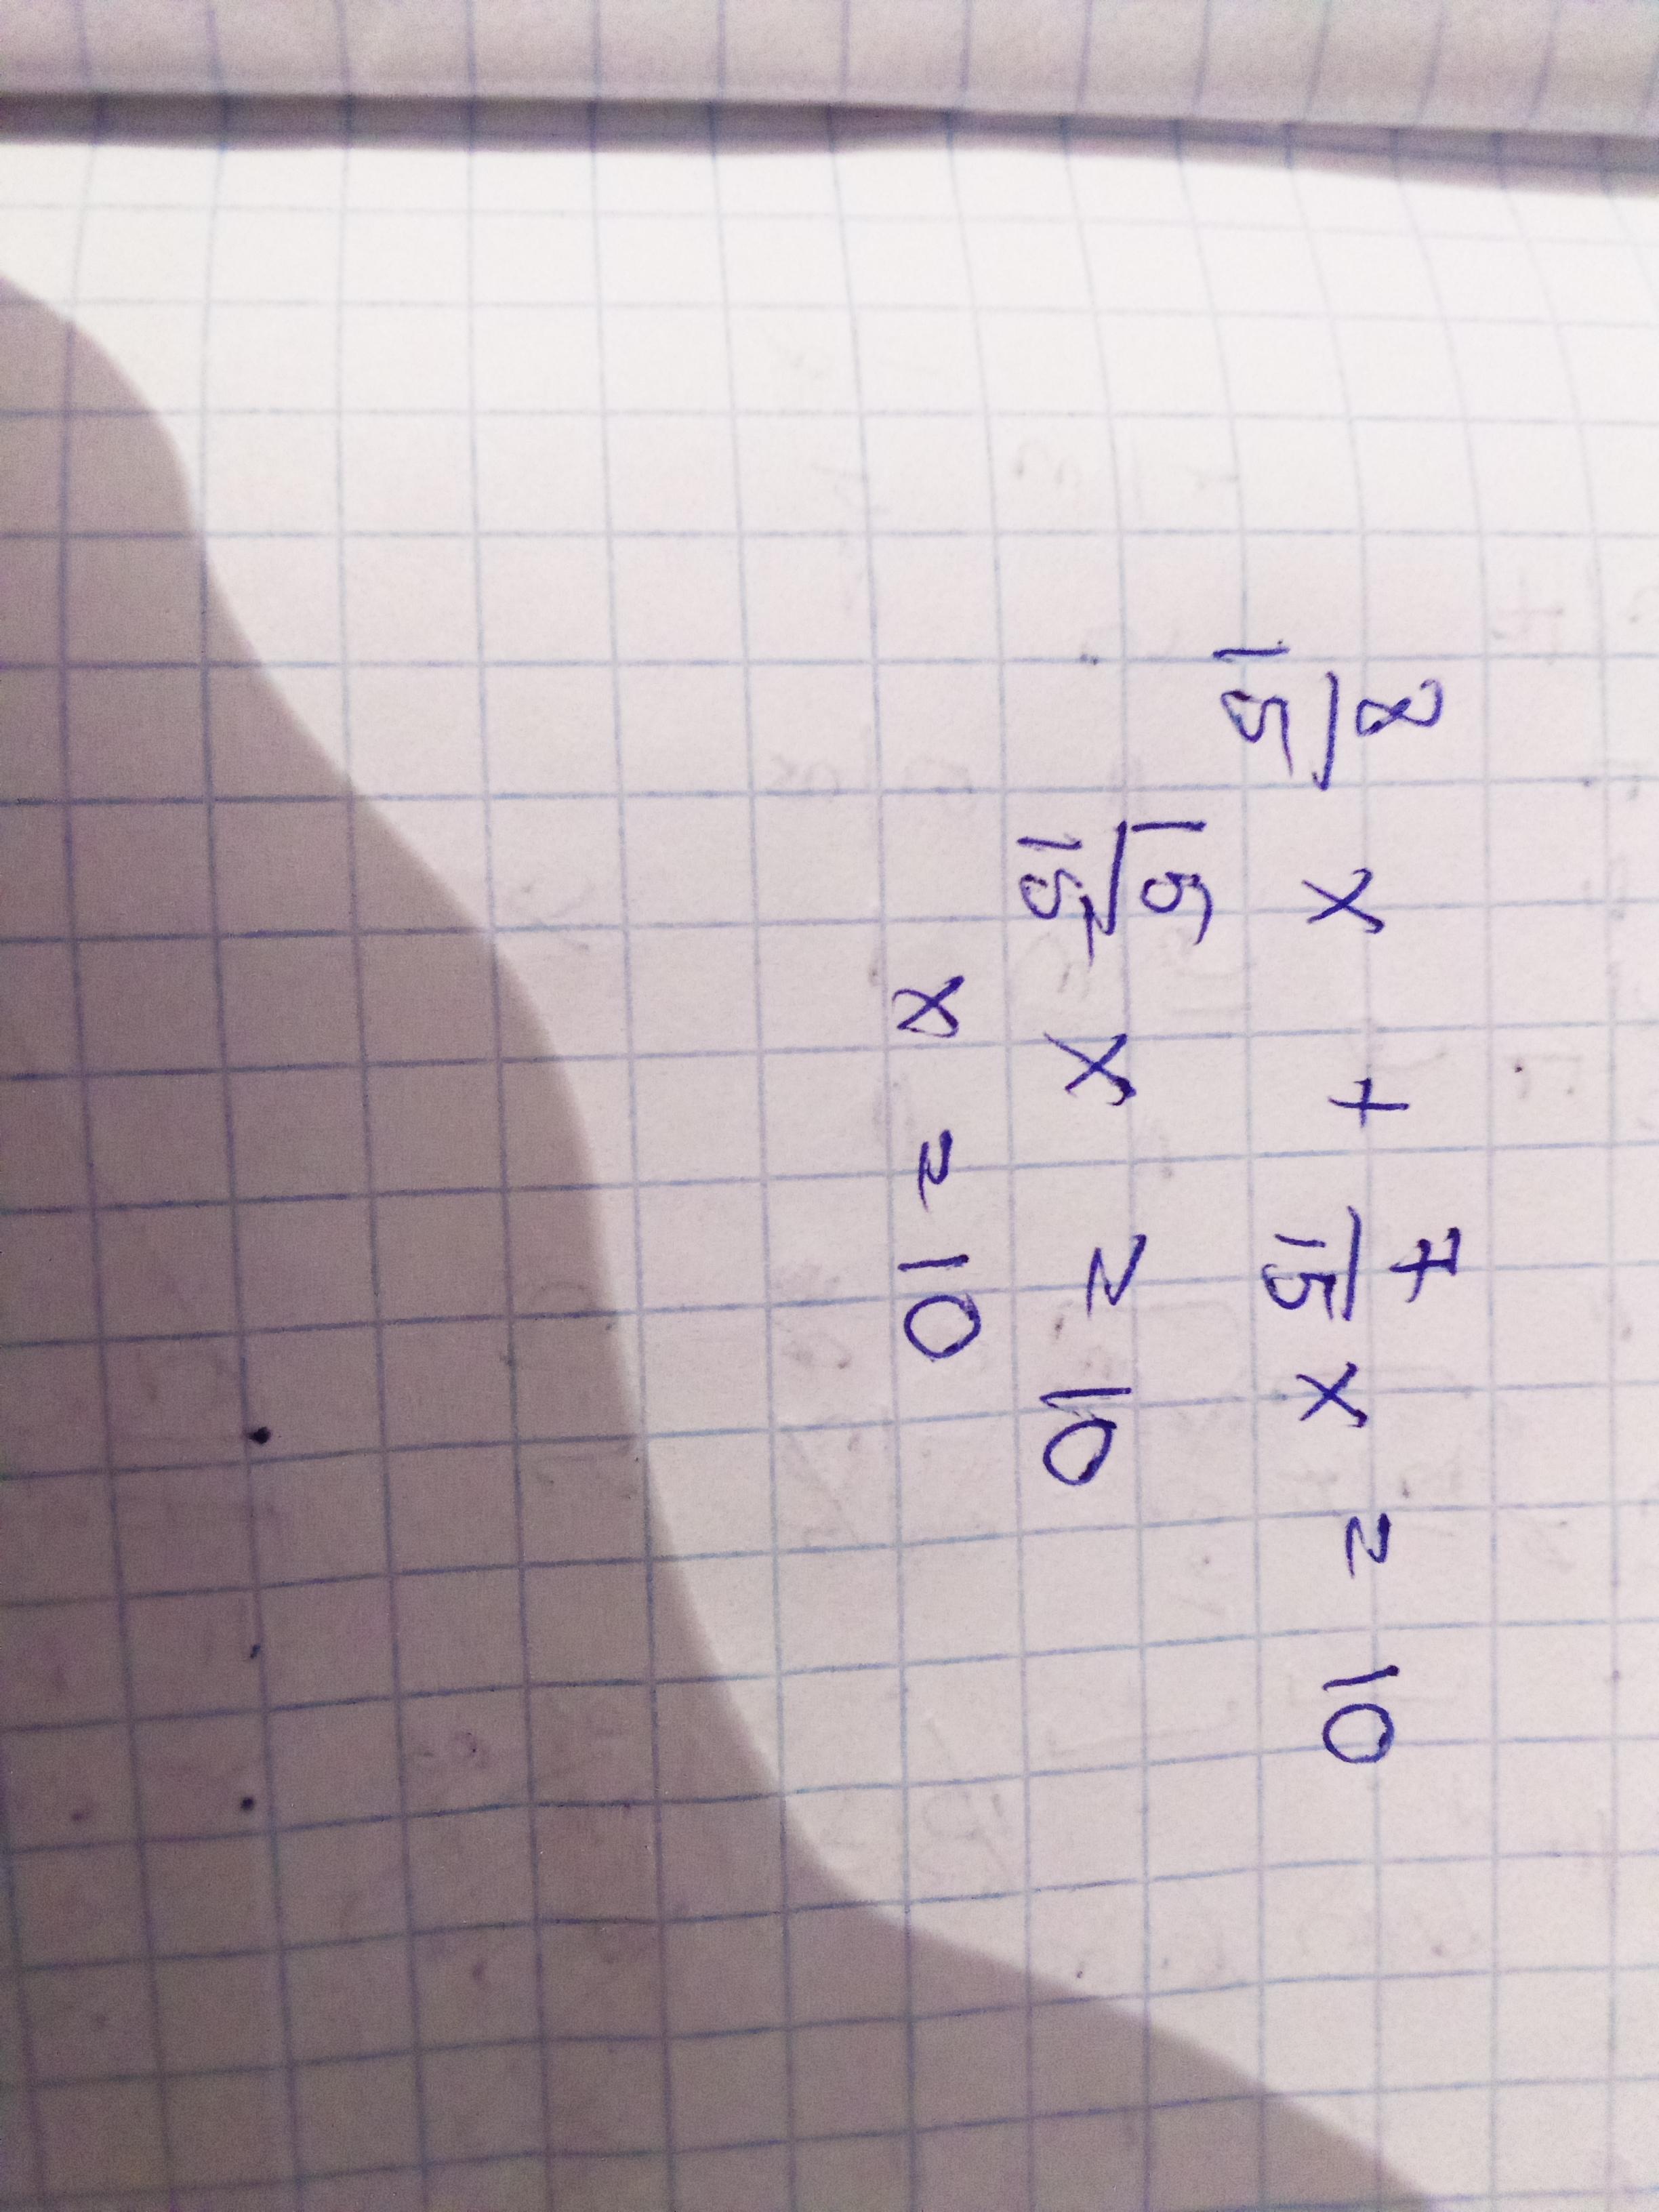 8/15 x + 7/15 x = 10
15/15 x = 10
x = 10